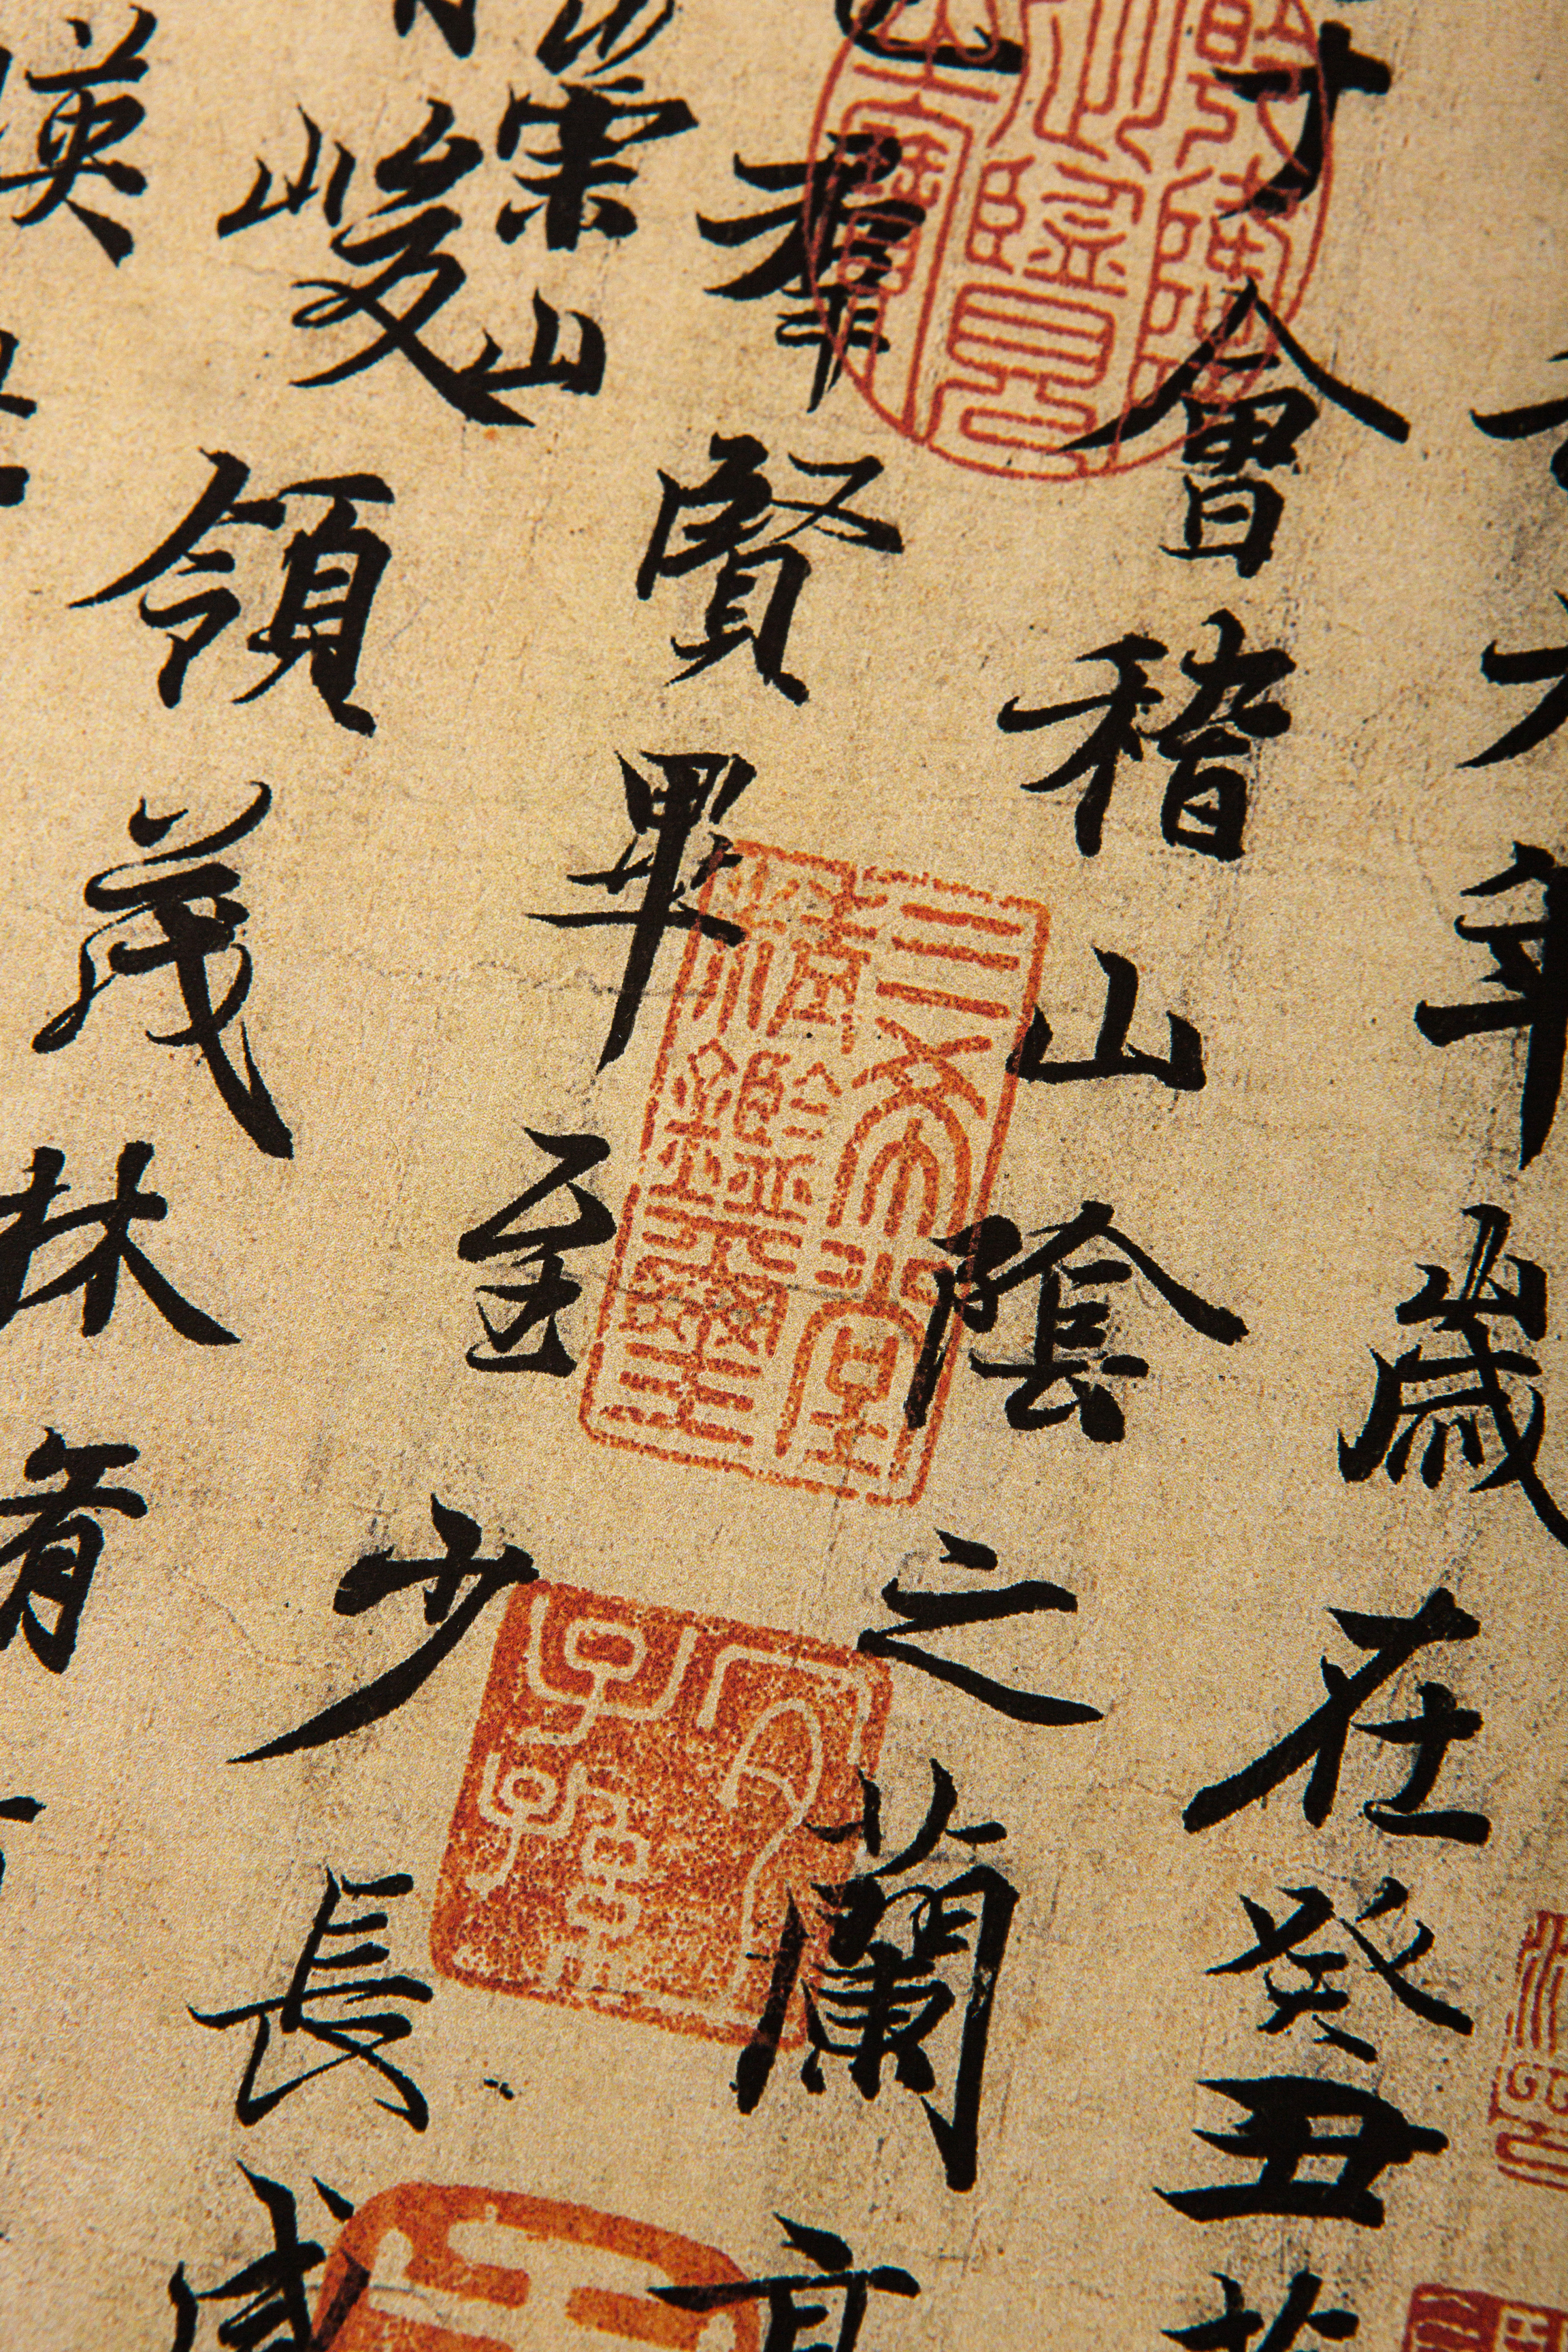 年歲在癸丑
會稽山陰之蘭亭
羣賢畢至少長咸
崇山
峻領茂林脩
暎
三希堂
精鑑璽
宜
子孫